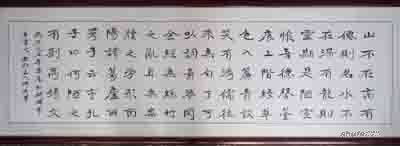 山不在高有
僊則名水不
在深有龍則
靈斯是陋室
惟吾德馨苔
痕上階綠草
色入簾青談
笑有鴻儒往
來無白丁可
以調素琴閱
金經無絲竹
之亂耳無案
牘之勞形南
陽諸葛廬西
蜀子雲亭孔
子曰何陋之
有劉禹錫文